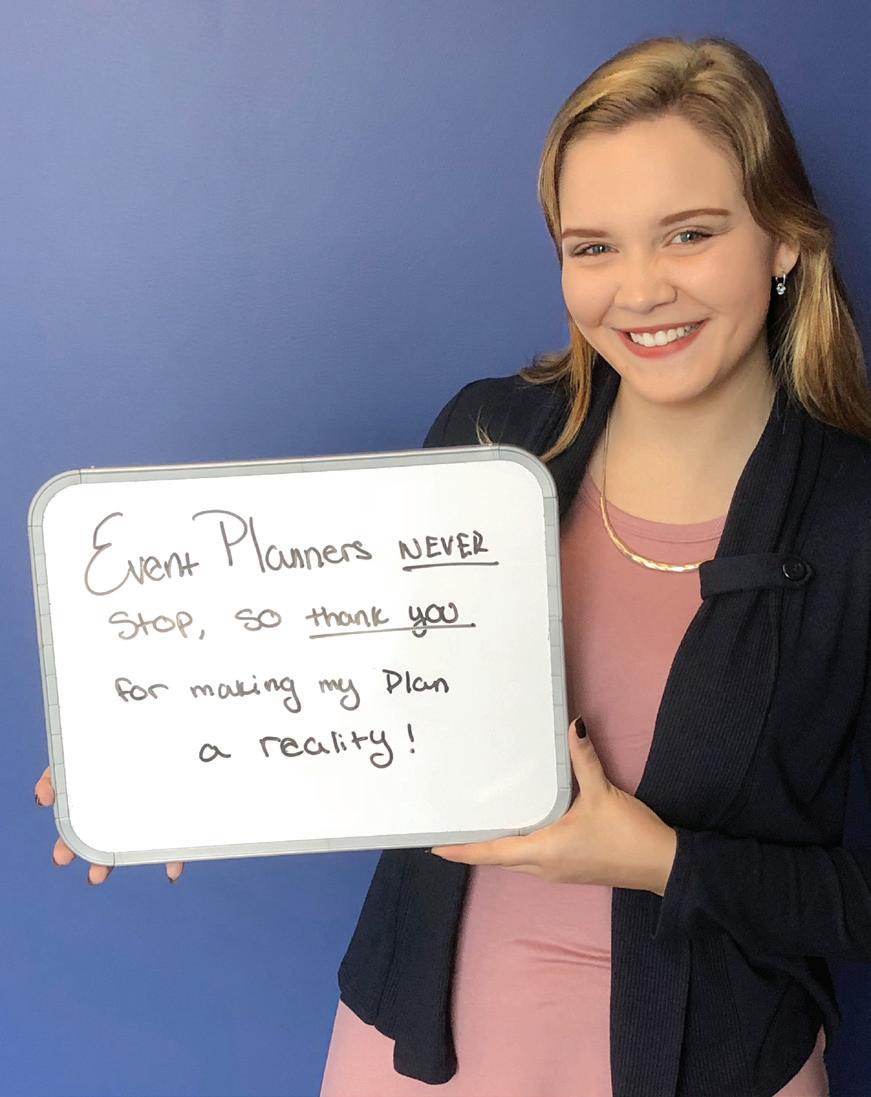 Event Planners NEVER
Stop, so thank you
for making my Plan
a reality!